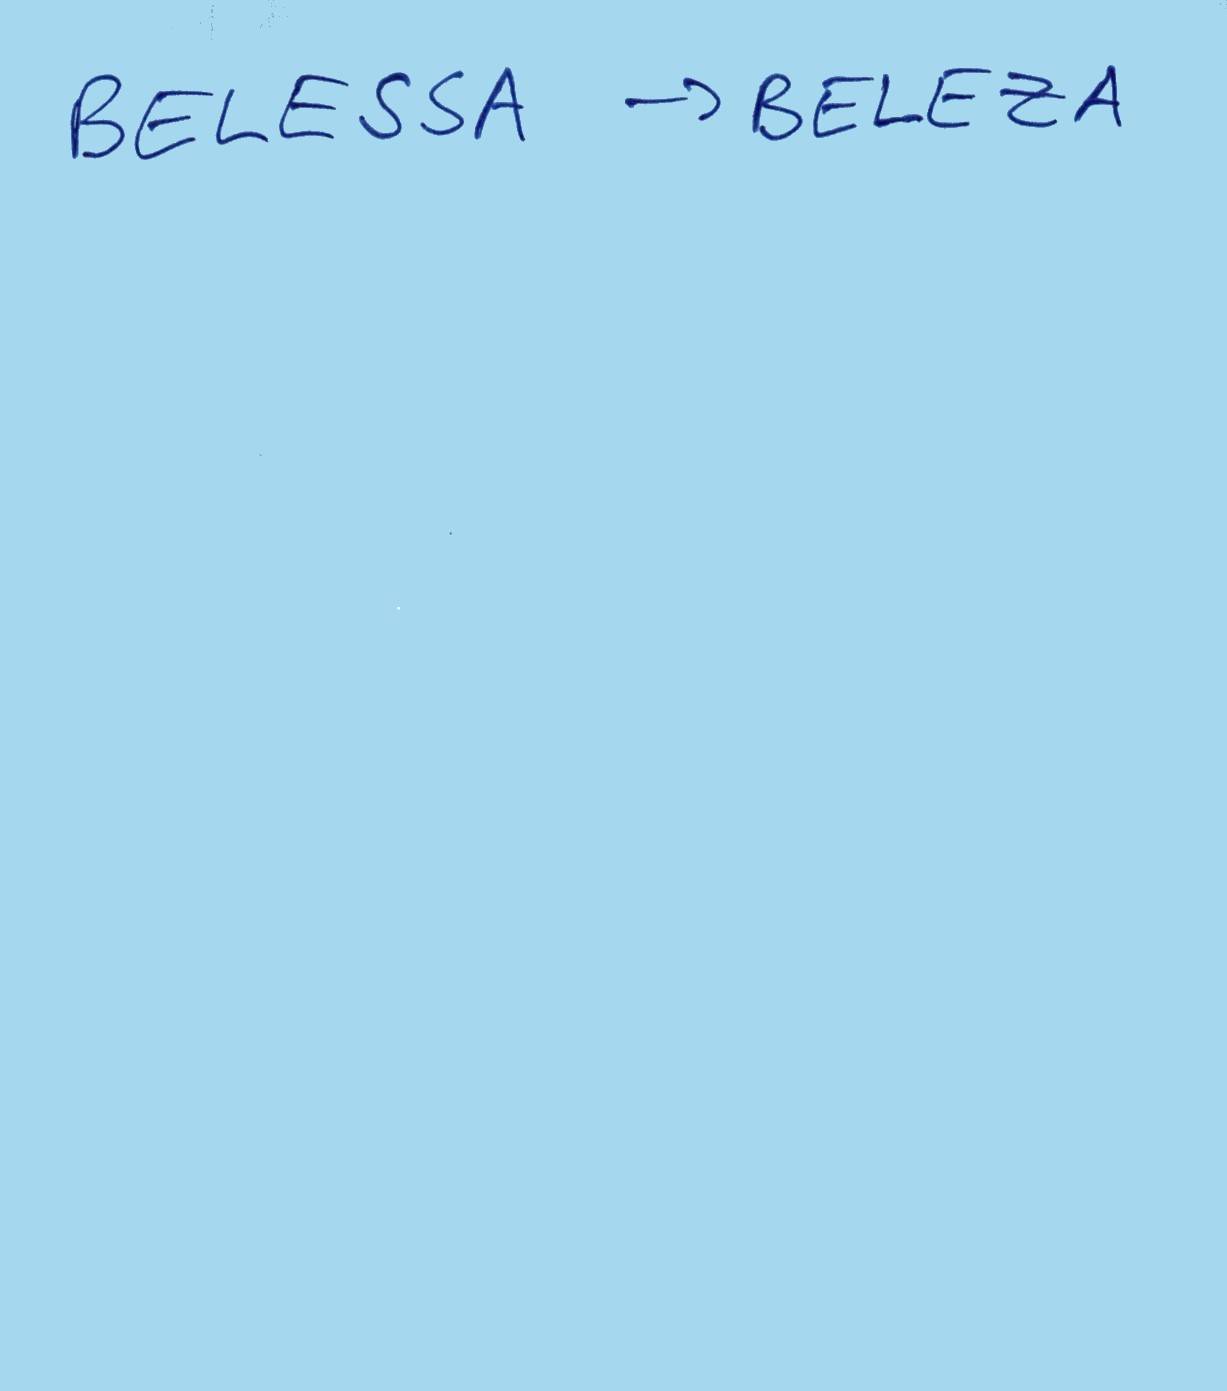 BELESSA → BELEZA